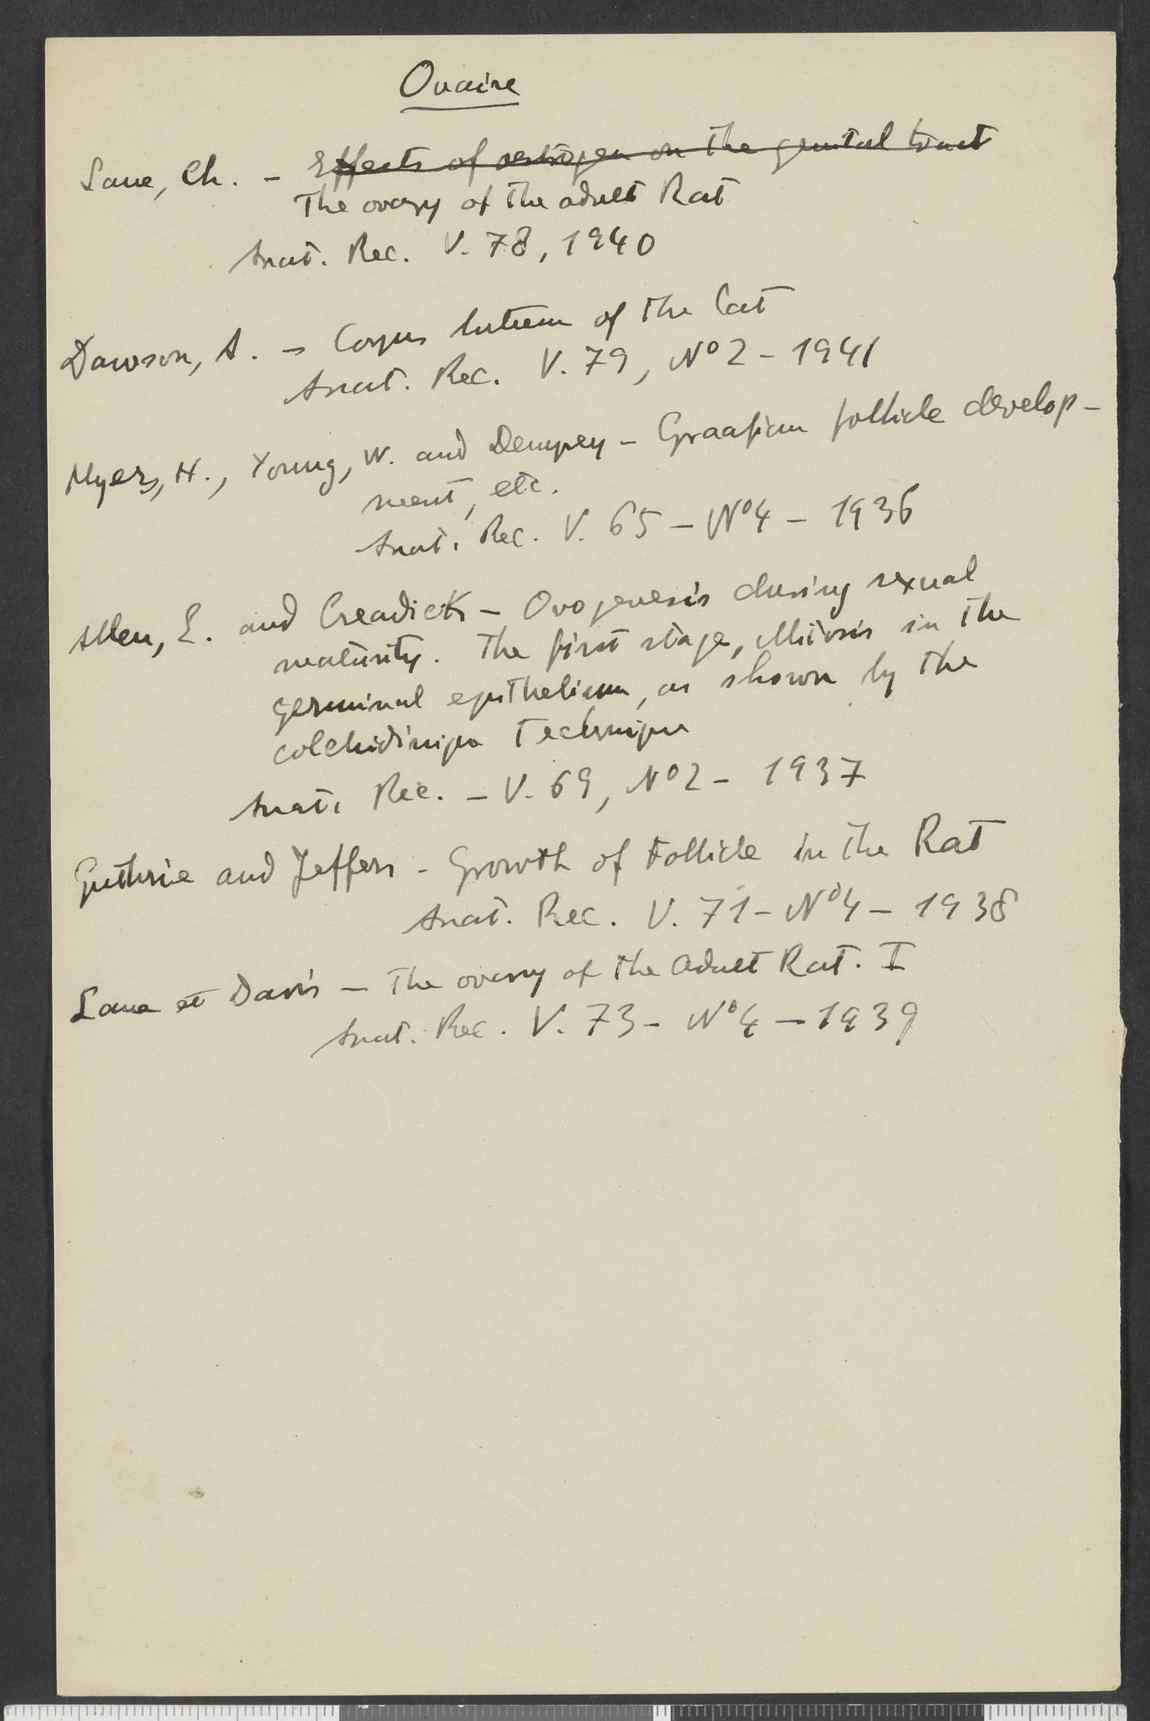 Ovaire
Lane, Ch. - Effects of oestrogen on the genital tract
The ovary of the adult Rat
Anat. Rec. V. 78, 1940
Dawson, A. - Corpus luteum of the Cat
Anat. Rec. V. 79, No2 - 1941
Myers, H., Young, W. and Dempsey - Graafian follicle develop-
ment, etc.
Anat. Rec. V. 65 - No4 - 1936
Allen, E. and Creadick - Ovogenesis during sexual
maturity. The first stage, Mitosis in the
germinal epithelium, as shown by the
technique
Anat. Rec. - V. 69, No2 - 1937
Guthrie and Jeffers - Growth of Follicle in the Rat
Anat. Rec. V. 71 - No4 - 1938
Lane et Davis - The ovary of the Adult Rat. I
Anat. Rec. V. 73 - No4 - 1939